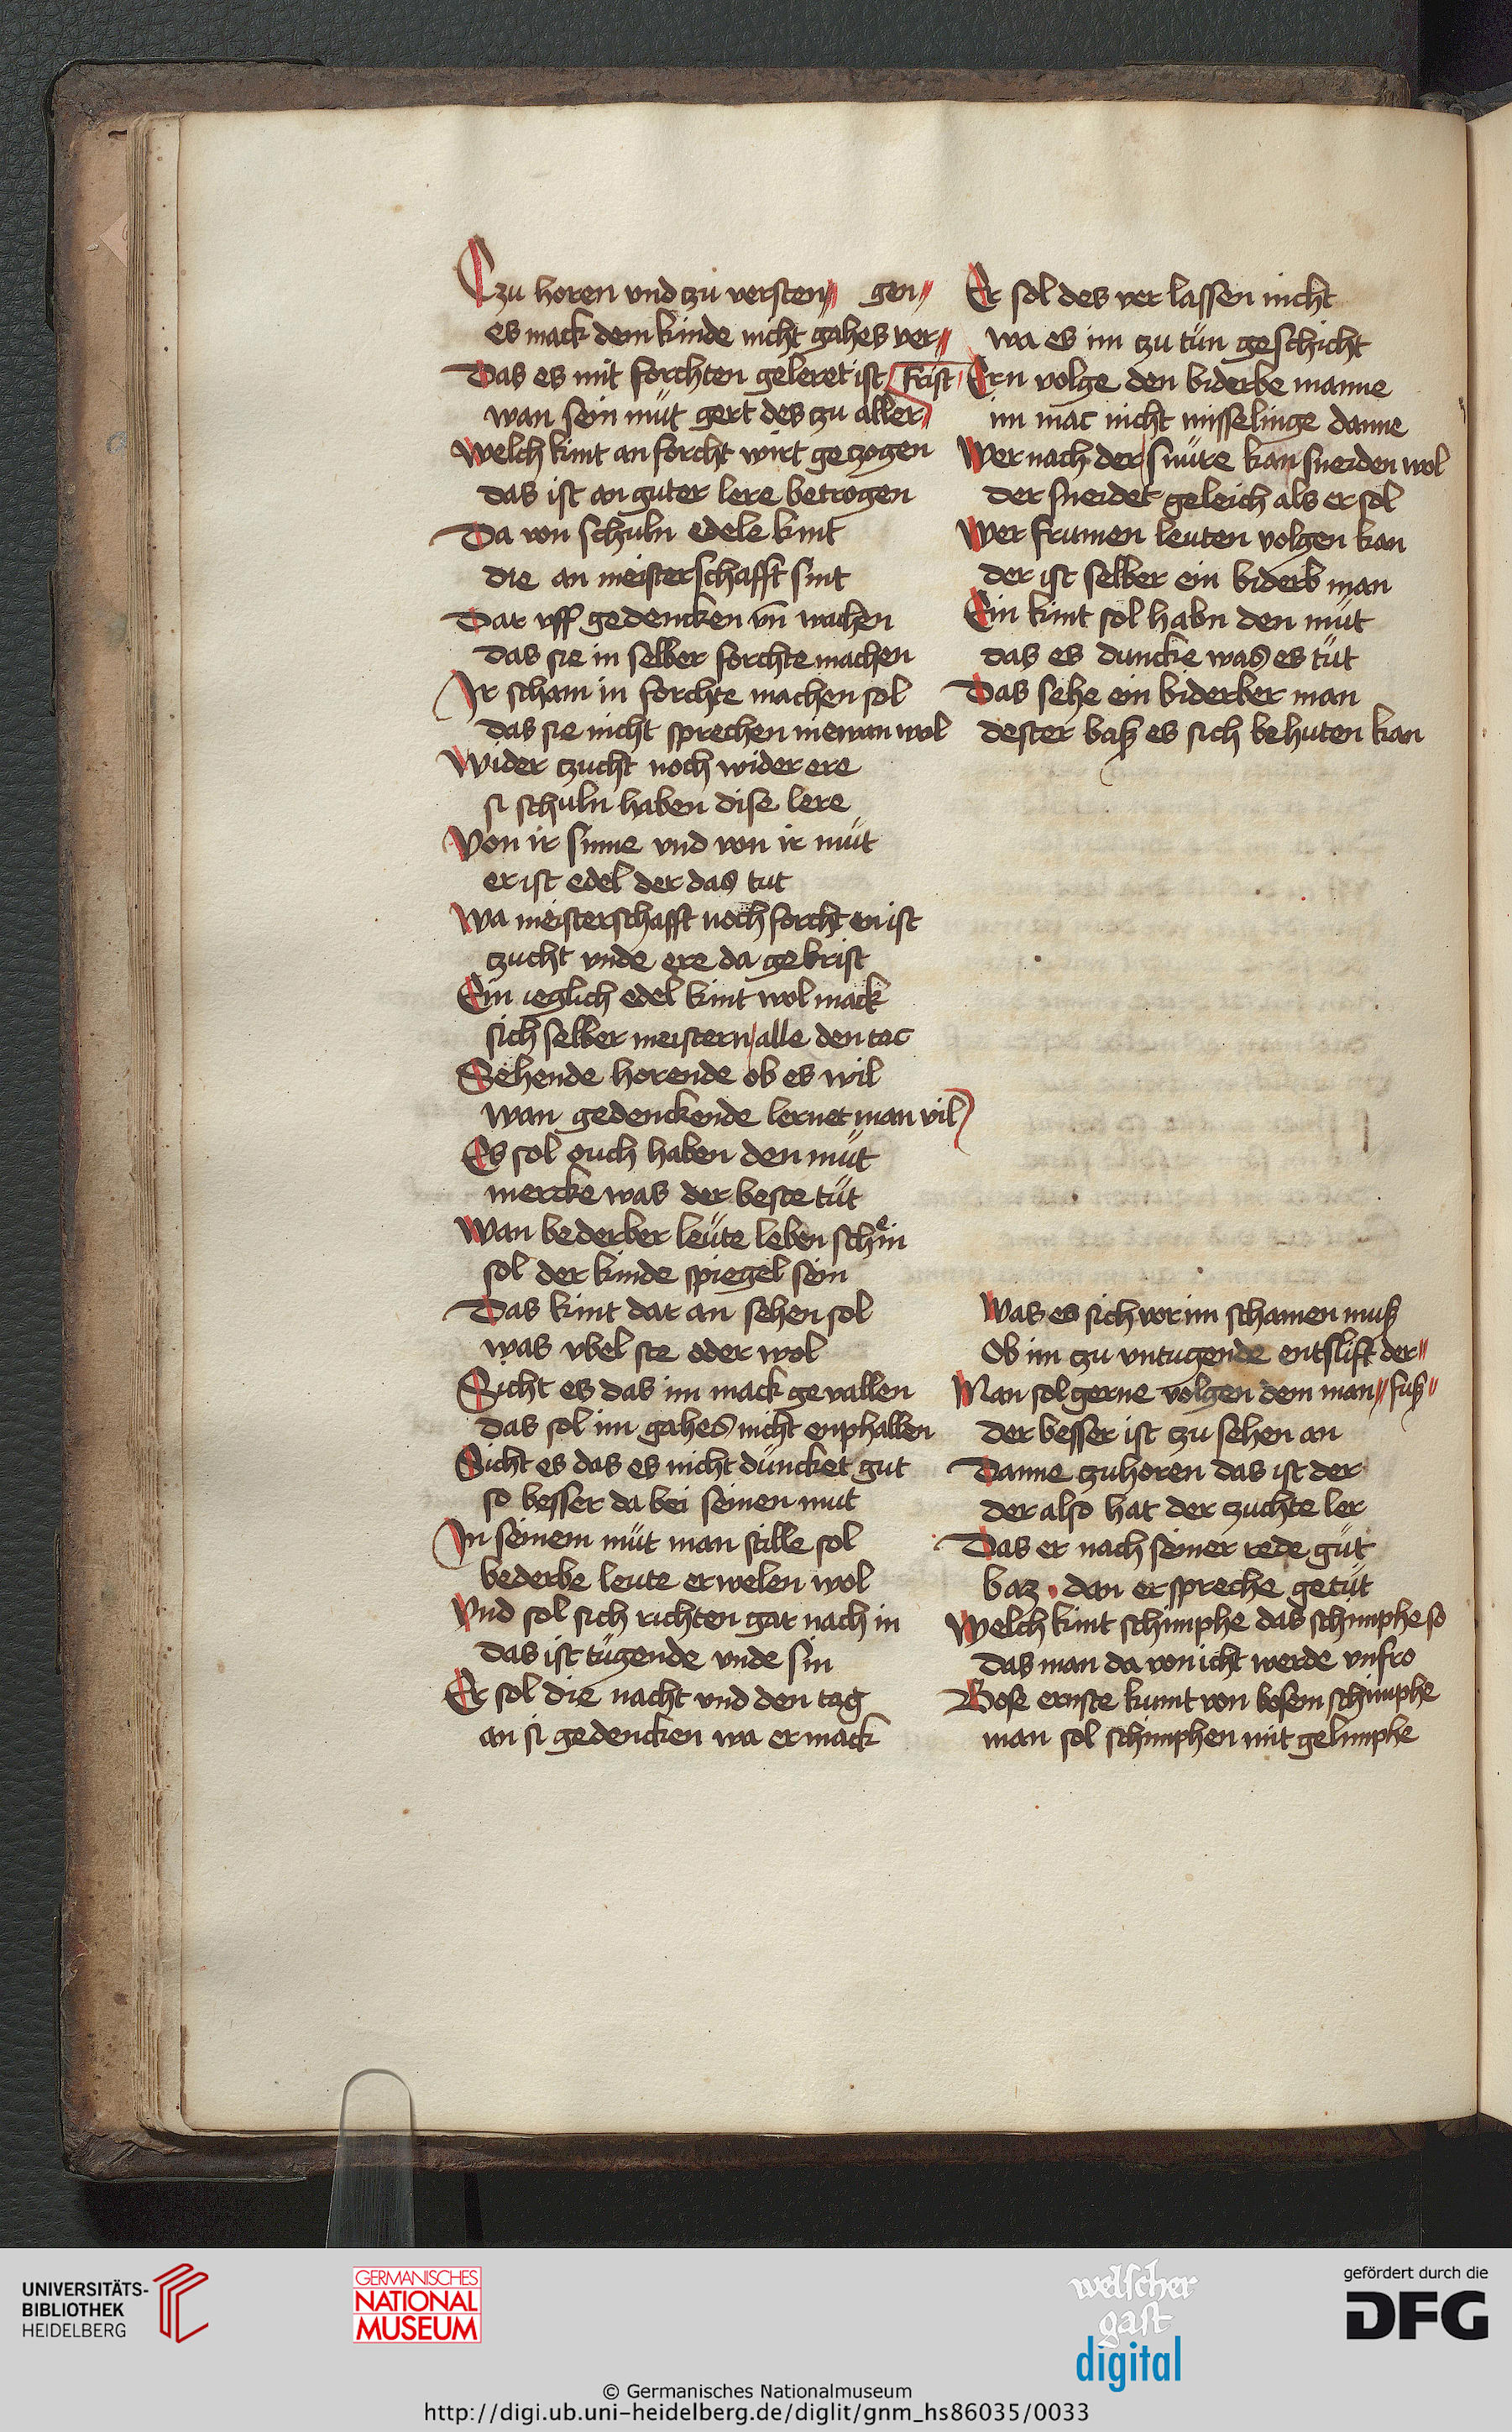 Czu horen vnd zu versten gen
es mack dem kinde nicht gahes ver
Das es mit forchten geleret ist frist
wan sein müt gert des zu aller
Welch kint an forcht wirt geczogen
das ist an guter lere betrogen
Da von schuln edele kint
die an meisterschafft sint
Dar vff gedencken vn̄ wachen
das sie in selber forchte machen
Ir scham in forchte machen sol
das sie nicht sprechen niewan wol
Wider zucht noch wider ere
si schuln haben dise lere
Von ir sinne vnd von ir müt
er ist edel der das tut
Wa meisterschafft noch forcht enist
zucht vnde ere da gebrist
Ein ieglich edel kint wol mack
sich selber meistern alle den tac
Sehende horende ob es wil
wan gedenckende lernet man vil
Es sol ouch haben den müt
mercke was der beste tüt
Wan bederber leüte leben schein
sol der kinde spiegel sein
Das kint dar an sehen sol
was vbel ste oder wol
Sicht es das im mack gevallen
das sol im gahes nicht enphallen
Sicht es das es nicht düncket gut
so besser da bei seinen mut
In seinem müt man stille sol
bederbe leute erwelen wol
Vnd sol sich richten gar nach in
das ist tügende vnde sin
Er sol die nacht vnd den tag
an si gedencken wa er mack
Er sol des ver lassen nicht
wa es im zu tün geschicht
Ern volge den biderbe manne
im mac nicht misselinge danne
Wer nach der snüre kan sneiden wol
der sneidet geleich als er sol
Wer frumen leuten volgen kan
der ist selber ein biderb man
Ein kint sol habn den müt
das es duncke was es tüt
Das sehe ein biderber man
dester baß es sich behuten kan
Was es sich vor im schamen muß
Ob im zu vntugende entslift der
Man sol gerne volgen dem man fuß
der besser ist zu sehen an
Danne zuhoren das ist der
der also hat der zuchte ler
Das er nach seiner rede güt
baz dan er spreche getüt
Welch kint schimphe das schimphe so
das man da von icht werde vnfro
Bose ernste kumt von bosem schimphe
man sol schimphen mit gelimphe
UNIVERSITÄTS-
BIBLIOTHEK
HEIDELBERG
GERMANISCHES
NATIONAL
MUSEUM
welscher
gast
digital
gefördert durch die
DFG
© Germanisches Nationalmuseum
http://digi.ub.uni-heidelberg.de/diglit/gnm_hs86035/0033